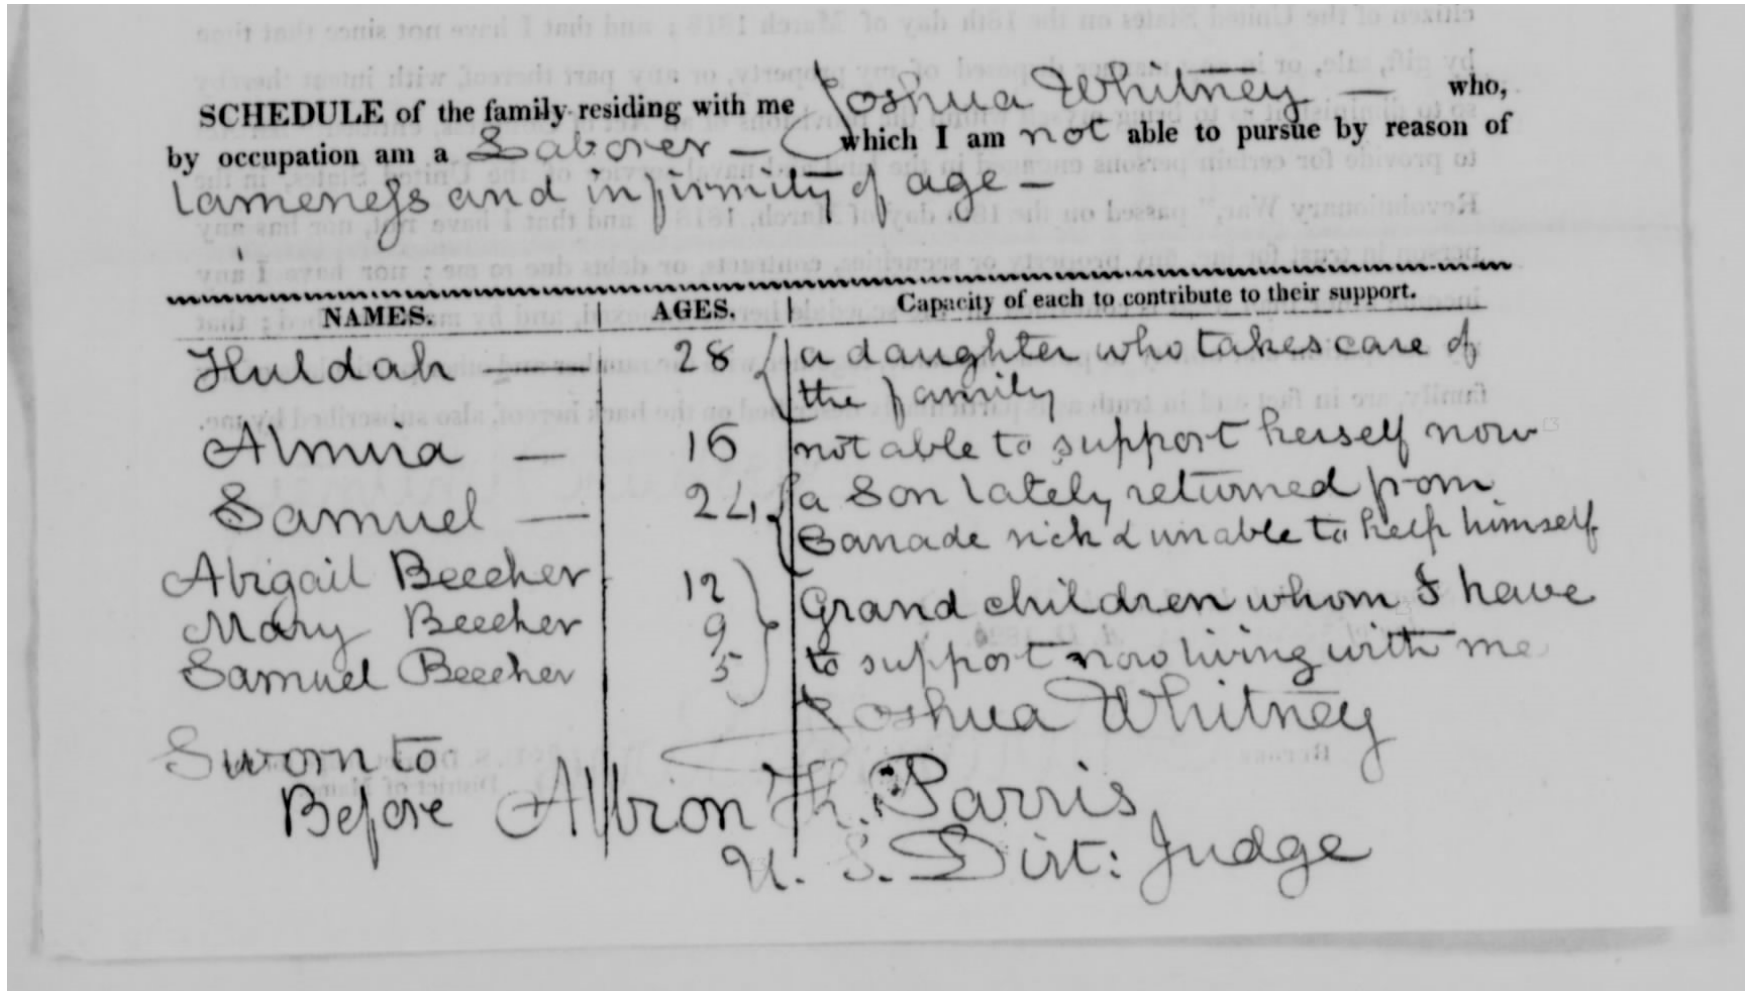 SCHEDULE of the family residing with me Joshua Whitney — who,
by occupation am a Laborer — which I am not able to pursue by reason of
lameness and infirmity of age —
NAMES. AGES. Capacity of each to contribute to their support.
Huldah — 28 a daughter who takes care of
the family
Almira — 16 not able to support herself now
Samuel — 24 a Son lately returned from
Canade sick & unable to help himself
Abigail Beecher 12 Grand children whom I have
Mary Beecher 9
Samuel Beecher 5 to support now living with me
Joshua Whitney
Sworn to
Before Albion K. Parris
U. S. Dist: Judge